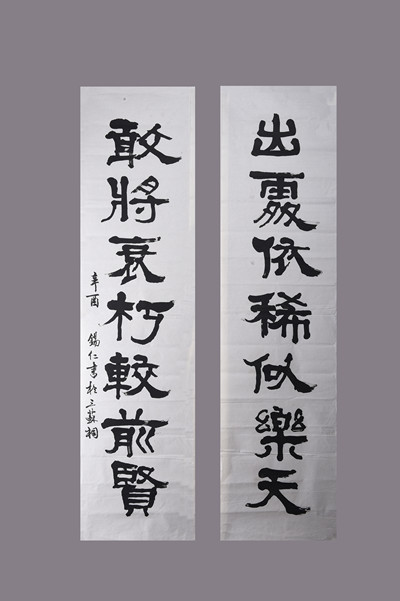 出處依稀似樂天
敢將衰朽較前賢
辛酉 錫仁書於三蘇祠